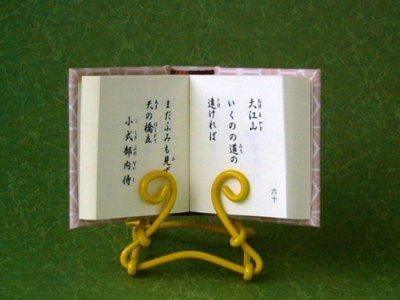 六十
大江山
いくのの道の
遠ければ
まだふみも見ず
天の橋立
小式部内侍